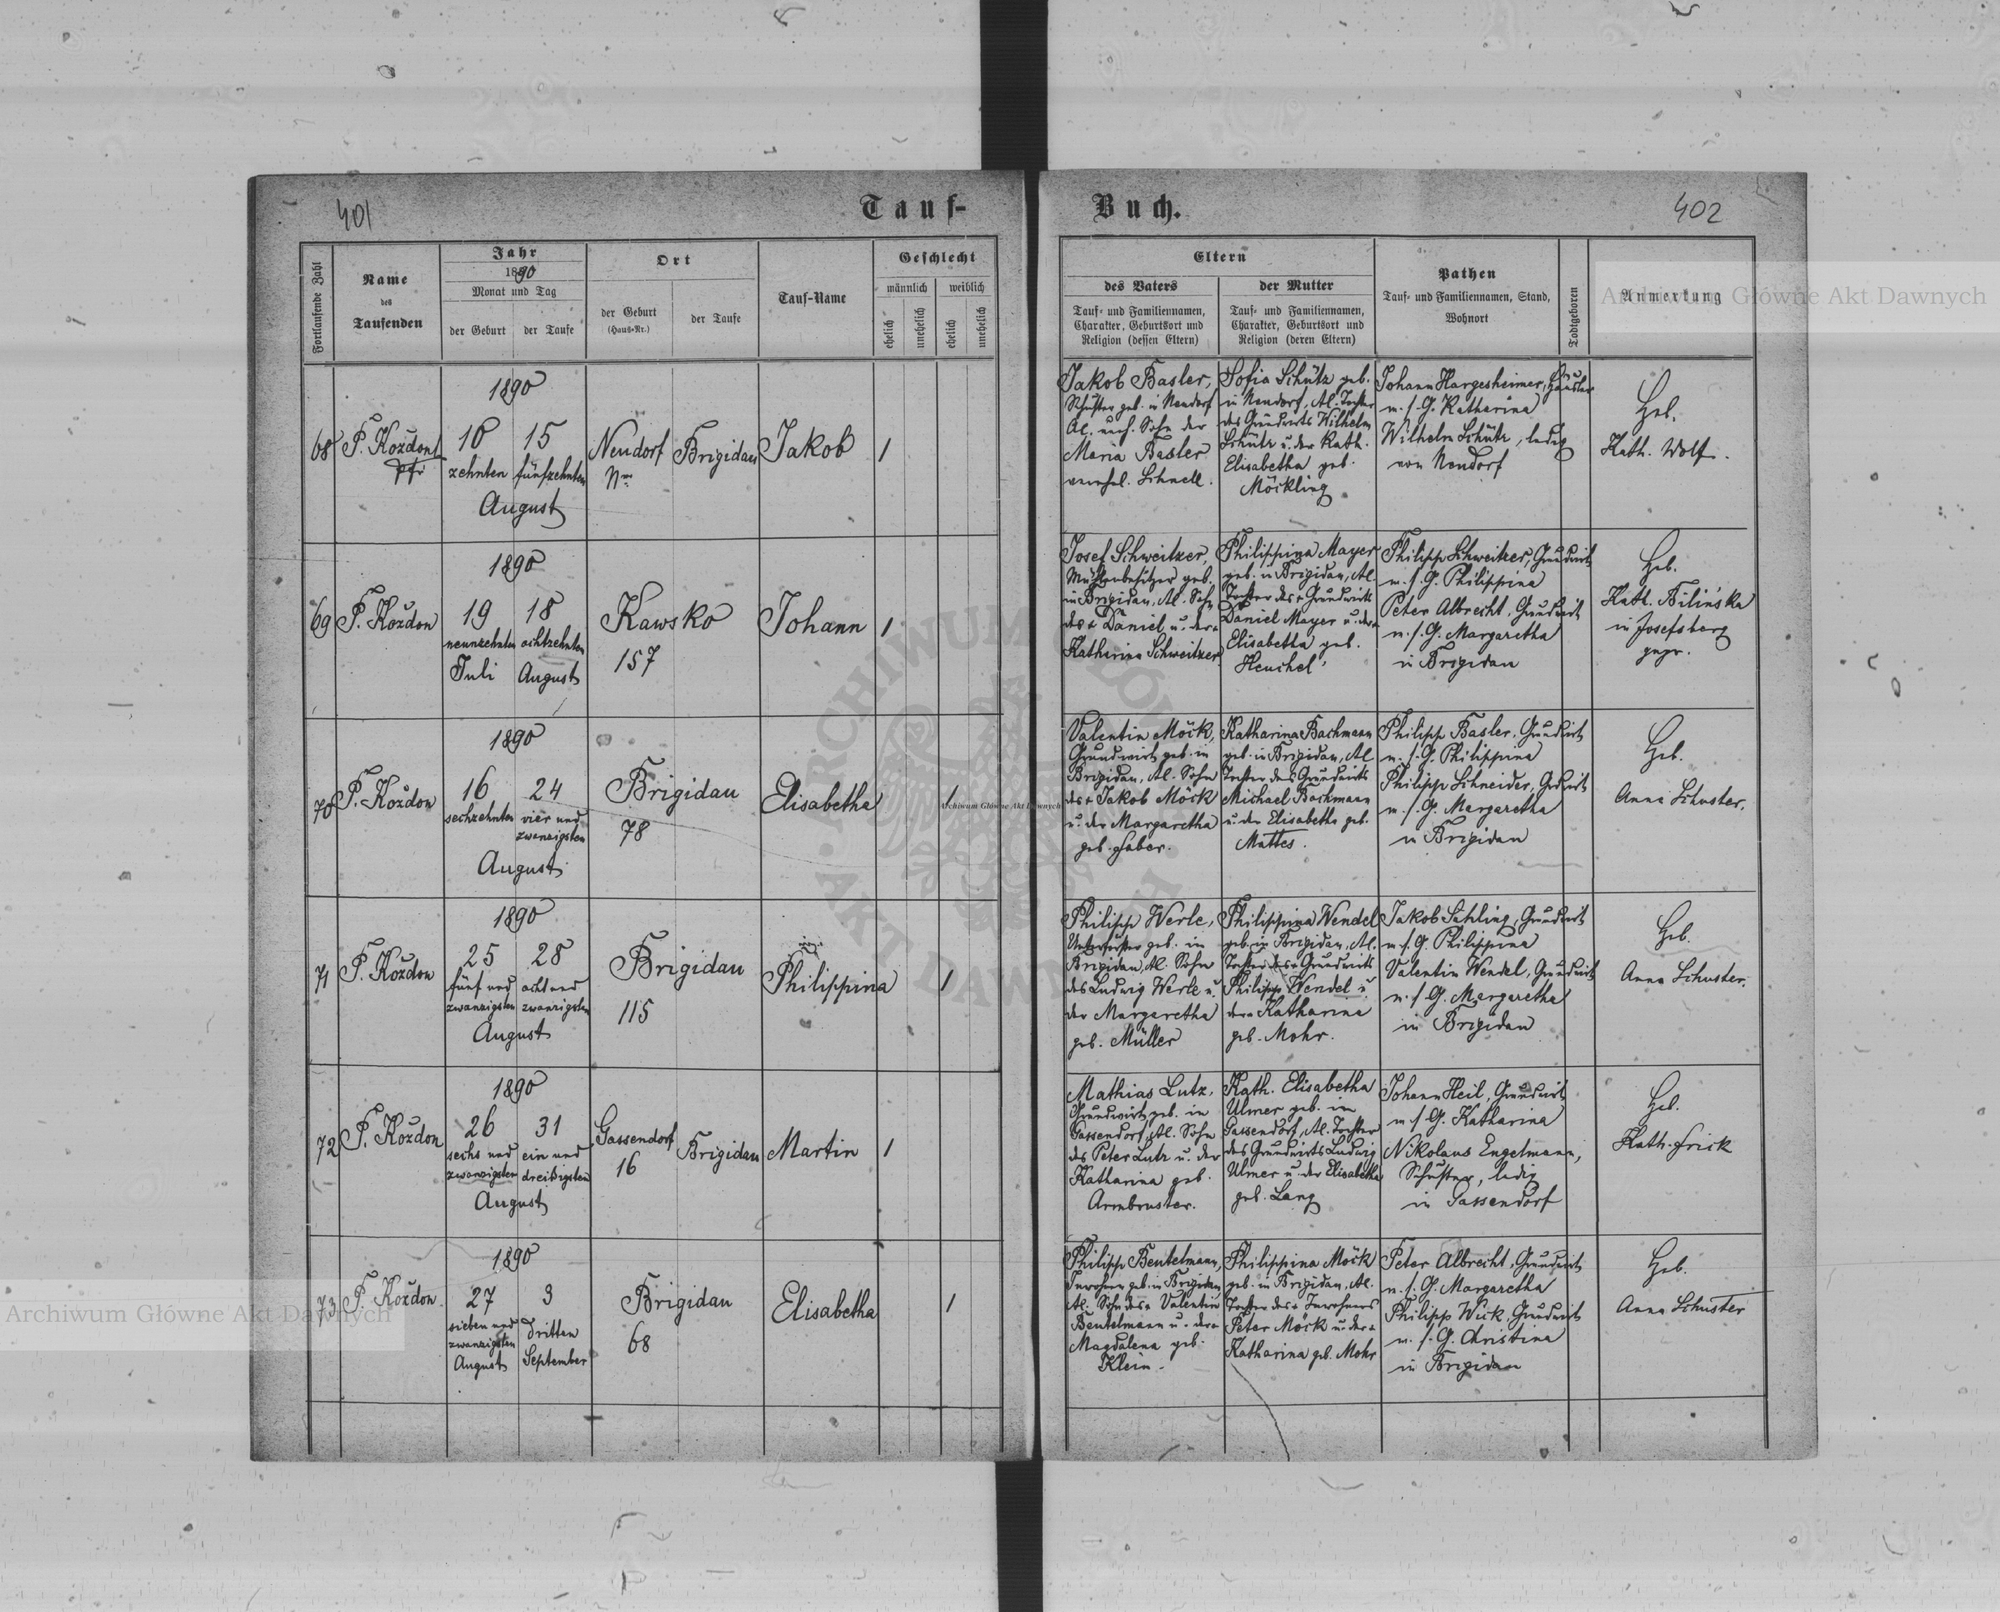 401
Tauf-
Buch.
402
Fortlaufende Zahl
Name
des
Taufenden
Jahr
1890
Monat und Tag
der Geburt
der Taufe
Ort
der Geburt
(Haus-Nr.)
der Taufe
Tauf-Name
Geschlecht
männlich
weiblich
ehelich
unehelich
ehelich
unehelich
Eltern
des Vaters
Tauf- und Familiennamen,
Charakter, Geburtsort und
Religion (dessen Eltern)
der Mutter
Tauf- und Familiennamen,
Charakter, Geburtsort und
Religion (deren Eltern)
Pathen
Tauf- und Familiennamen, Stand,
Wohnort
Todtgeboren
Anmerkung
68
P. Koždon
1890
10 15
zehnten fünfzehnten
August
Neudorf
Nro
Brigidau
Jakob
1
Jakob Basler,
Schuster geb. in Neudorf
Al. uneh. Sohn der
Maria Basler
verehel. Schnell.
Sofia Schütz geb.
in Neudorf, Al. Tochter
des Grundwirts Wilhelm
Schütz u. der Kath.
Elisabetha geb.
Möckling
Johann Hargesheimer, Häusler
m. s. G. Katharina
Wilhelm Schütz, ledig
von Neudorf
Heb.
Kath. Wolf.
69
P. Koždon
1890
19 18
neunzehnten achtzehnten
Juli August
Kawsko
157
Johann
1
Josef Schweitzer,
Mühlenbesitzer geb.
in Brigidau, Al. Sohn
des + Daniel u. der +
Katharina Schweitzer
Philippina Mayer
geb. in Brigidau, Al.
Tochter des + Grundwirts
Daniel Mayer u. der +
Elisabetha geb.
Henchel
Philipp Schweitzer, Grundwirt
m. s. G. Philippina
Peter Albrecht, Grundwirt
m. s. G. Margaretha
in Brigidau
Heb.
Kath. Bilińska
in Josefsberg
gepr.
70
P. Koždon
1890
16 24
sechzehnten vier und
zwanzigsten
August
Brigidau
78
Elisabetha
1
Valentin Möck,
Grundwirt geb. in
Brigidau, Al. Sohn
des + Jakob Möck
u. der Margaretha
geb. Faber.
Katharina Bachmann
geb. in Brigidau, Al.
Tochter des Grundwirts
Michael Bachmann
u. der Elisabetha geb.
Mattes.
Philipp Basler, Grundwirt
m. s. G. Philippina
Philipp Schneider, Grdwirt
m. s. G. Margaretha
in Brigidau
Heb.
Anna Schuster.
71
P. Koždon
1890
25 28
fünf und acht und
zwanzigsten zwanzigsten
August
Brigidau
115
Philippina
1
Philipp Werle,
Unterförster geb. in
Brigidau, Al. Sohn
des Ludwig Werle u.
der Margaretha
geb. Müller
Philippina Wendel
geb. in Brigidau, Al.
Tochter des + Grundwirts
Philipp Wendel u.
der + Katharina
geb. Mohr.
Jakob Sahling, Grundwirt
m. s. G. Philippina
Valentin Wendel, Grundwirt
m. s. G. Margaretha
in Brigidau
Heb.
Anna Schuster.
72
P. Koždon
1890
26 31
sechs und ein und
zwanzigsten dreißigsten
August
Gassendorf
16
Brigidau
Martin
1
Mathias Lutz,
Grundwirt geb. in
Gassendorf, Al. Sohn
des Peter Lutz u. der
Katharina geb.
Armbruster.
Kath. Elisabetha
Ulmer geb. in
Gassendorf, Al. Tochter
des Grundwirts Ludwig
Ulmer u. der Elisabetha
geb. Lang
Johann Heil, Grundwirt
m. s. G. Katharina
Nikolaus Engelmann,
Schuster, ledig
in Gassendorf
Heb.
Kath. Frick
73
P. Koždon
1890
27 3
sieben und dritten
zwanzigsten
August September
Brigidau
68
Elisabetha
1
Philipp Beutelmann,
Inwohner geb. in Brigidau
Al. Sohn des + Valentin
Beutelmann u. der +
Magdalena geb.
Klein.
Philippina Möck
geb. in Brigidau, Al.
Tochter des + Inwohners
Peter Möck u. der +
Katharina geb. Mohr
Peter Albrecht, Grundwirt
m. s. G. Margaretha
Philipp Wick, Grundwirt
m. s. G. Christina
in Brigidau
Heb.
Anna Schuster
Archiwum Główne Akt Dawnych
Archiwum Główne Akt Dawnych
Archiwum Główne Akt Dawnych